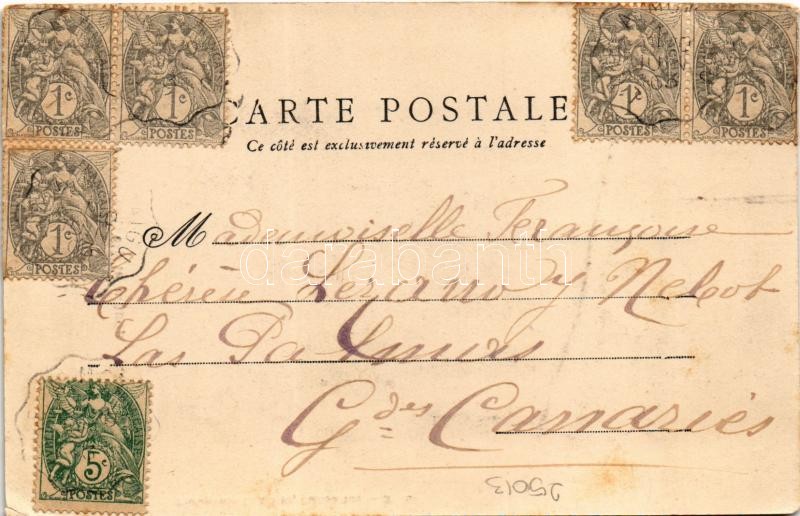 1c 1c
POSTES POSTES
1c 1c
POSTES POSTES
CARTE POSTALE
Ce côté est exclusivement réservé à l'adresse
1c
POSTES
Mademoiselle Françoise
Thérèse Lezcano y Nebot
Las Palmas
Gdes Canaries
5c
POSTES
25013
darabanth